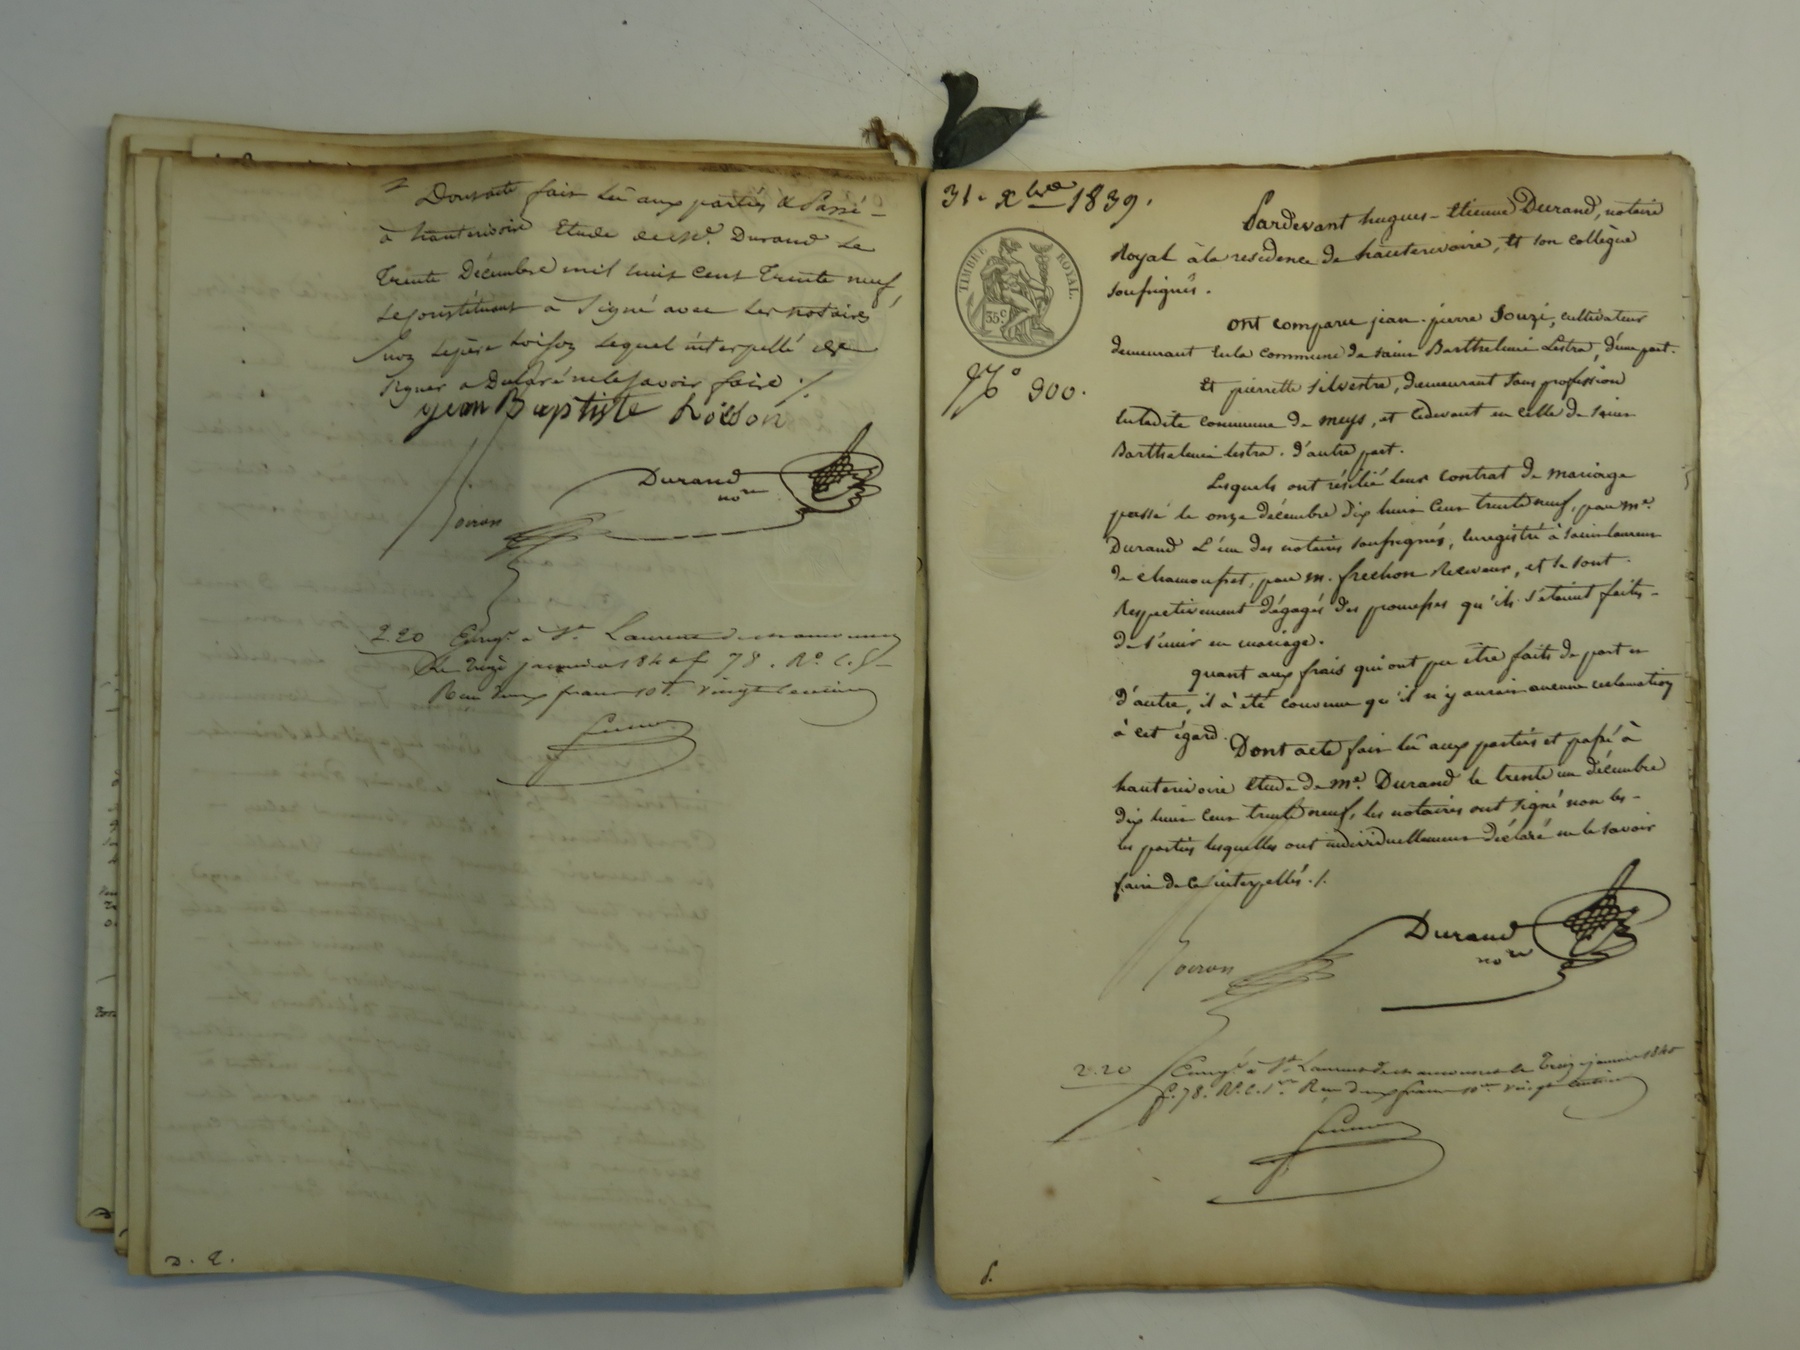 Dont acte fait lû aux parties & Passé
à hauterivoire Etude de Me. Durand Le
Trente Décembre mil huit cent Trente neuf,
Le constituant a signé avec les notaires
non le père Loison lequel interpellé de
signer a Déclaré ne le savoir faire ./.
jean Baptiste Loison
Durand
nore
Voiron
2.20 Enregt. à St. Laurent de chamousset
Le treize janvier 1840 f. 78. Ro. C. 5
Reçu deux francs 10e. vingt centimes
D. E.
31. Xbre 1839.
TIMBRE ROYAL.
35c
No 900.
Pardevant hugues-Etienne Durand, notaire
Royal à la residence de hauterivoire, et son collègue
soussignés.
Ont comparu jean-pierre Souzi, cultivateur
demeurant en la commune de saint Barthelemi Lestra, d'une part.
Et pierrette Silvestre, demeurant sans profession
en la dite commune de meys, et cidevant en celle de saint
Barthelemi lestra. d'autre part.
Lesquels ont résilié leur contrat de mariage
passé le onze décembre dix huit cent trente neuf, par me.
Durand L'un des notaires soussignés, enregistré à saint laurent
de chamousset, par m. frechon Receveur, et se sont
Respectivement dégagés des promesses qu'ils s'étaient faites
de s'unir en mariage.
quant aux frais qui ont pu être faits de part et
d'autre, il à été convenu qu'il n'y aurait aucune reclamation
à cet égard.
Dont acte fait lû aux parties et passé à
hauterivoire Etude de Me. Durand le trente un décembre
dix huit cent trente neuf, les notaires ont signé non les
les parties lesquelles ont individuellement déclaré ne le savoir
faire de ce interpellés ./.
Durand
nore
Voiron
2.20 Enregt. à St. Laurent de chamousset le treize janvier 1840
f. 78. Ro. C. 1re. Reçu deux francs 10me vingt centimes